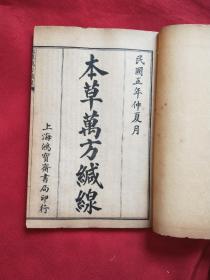 民國五年仲夏月
本草萬方鍼線
上海鴻寶齋書局印行